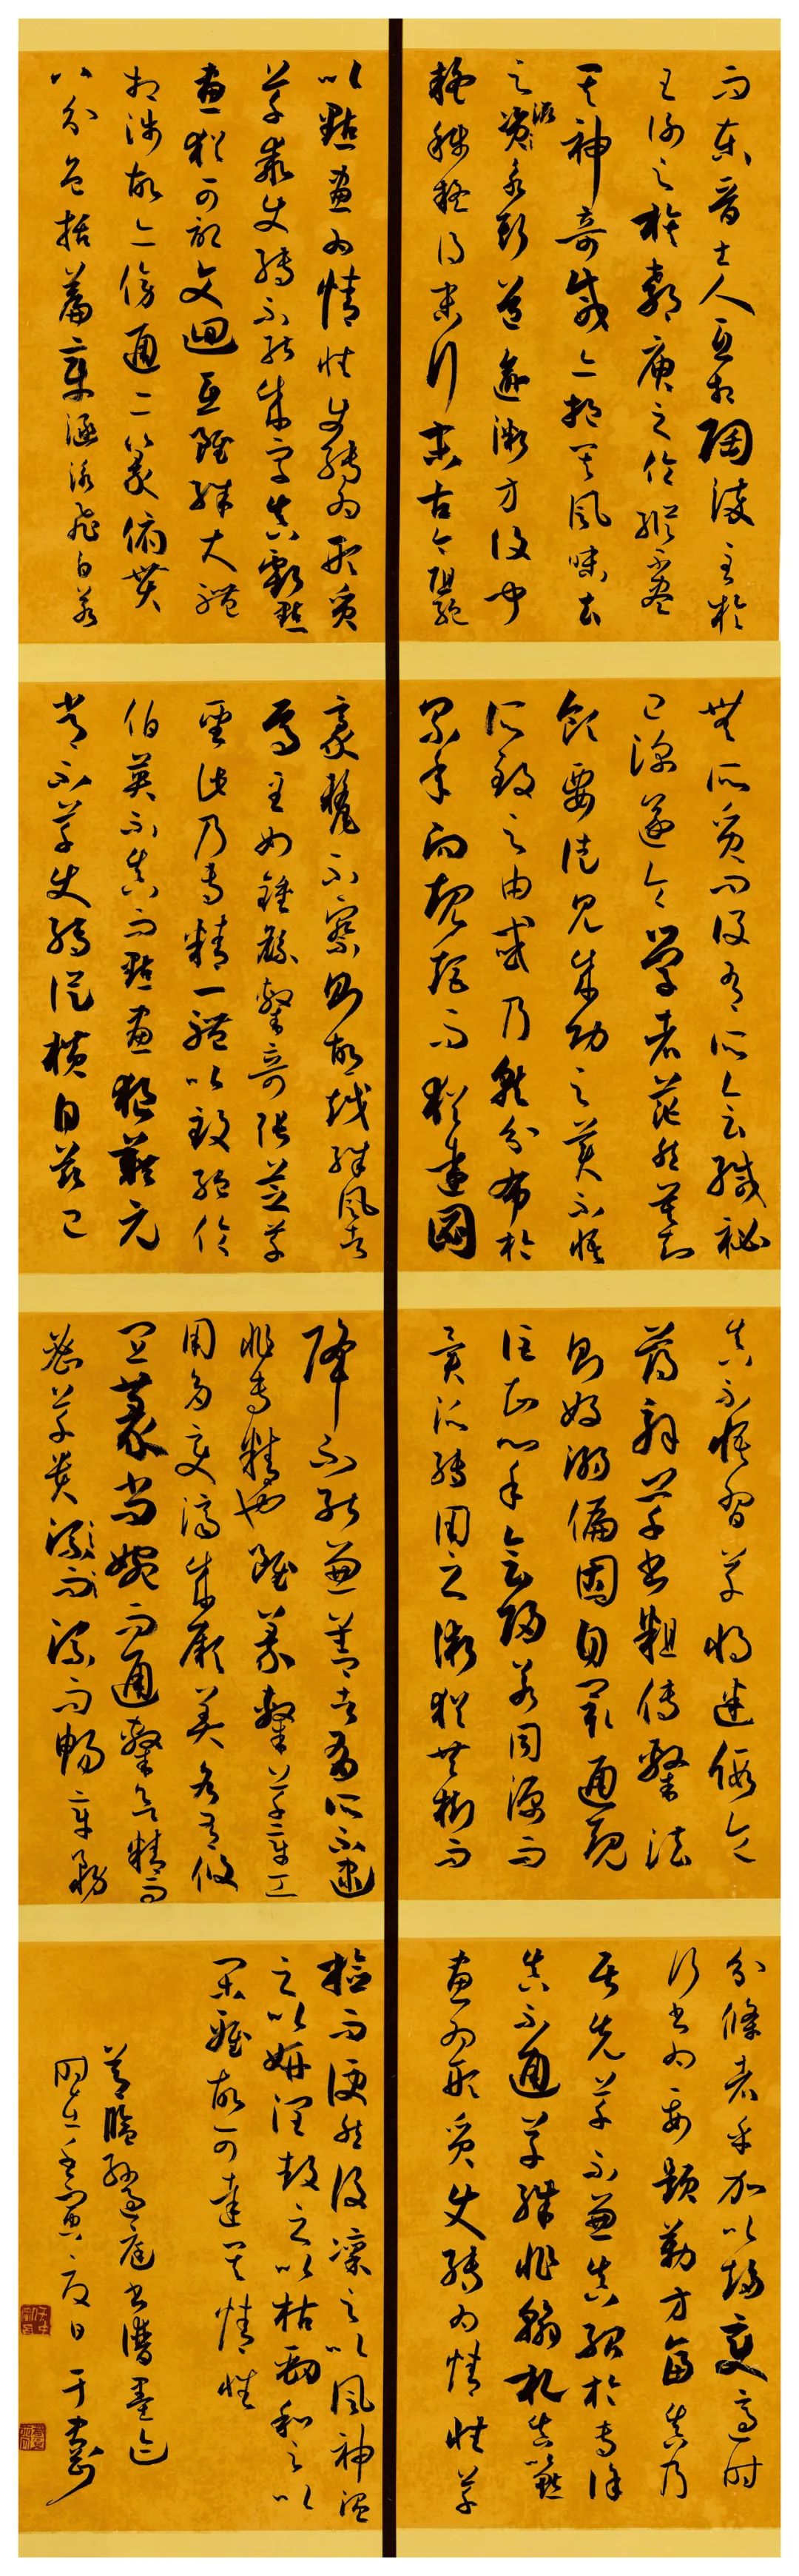 而東晉士人互相陶淬至於
王謝之族郗庾之倫縱不盡
其神奇咸亦挹其風味去
之滋永斯道逾微方復聞
疑稱疑得末行末古今阻絕
無所質問設有所會緘秘
已深遂令學者茫然莫知
領要徒見成功之美不悟
所致之由或乃就分布於
累年向規矩而猶遠圖
真不悟習草將迷假令
薄解草書粗傳隸法
則好溺偏固自閡通規
詎知心手會歸若同源而
異派轉用之術猶共樹而
分條者乎加以趨變適時
行書為要題勒方畐真乃
居先草不兼真殆於專謹
真不通草殊非翰札真以點
畫為形質使轉為情性草
以點畫為情性使轉為形質
草乖使轉不能成字真虧點
畫猶可記文迴互雖殊大體
相涉故亦傍通二篆俯貫
八分包括篇章涵泳飛白若
豪釐不察則胡越殊風者
焉至如鍾繇隸奇張芝草
聖此乃專精一體以致絕倫
伯英不真而點畫狼藉元
常不草使轉縱橫自茲已
降不能兼善者有所不逮
非專精也雖篆隸草章工
用多變濟成厥美各有攸
宜篆尚婉而通隸欲精而
密草貴流而暢章務
檢而便然後凜之以風神溫
之以妍潤鼓之以枯勁和之以
閑雅故可達其情性
節臨孫過庭書譜墨迹
時在壬寅夏日